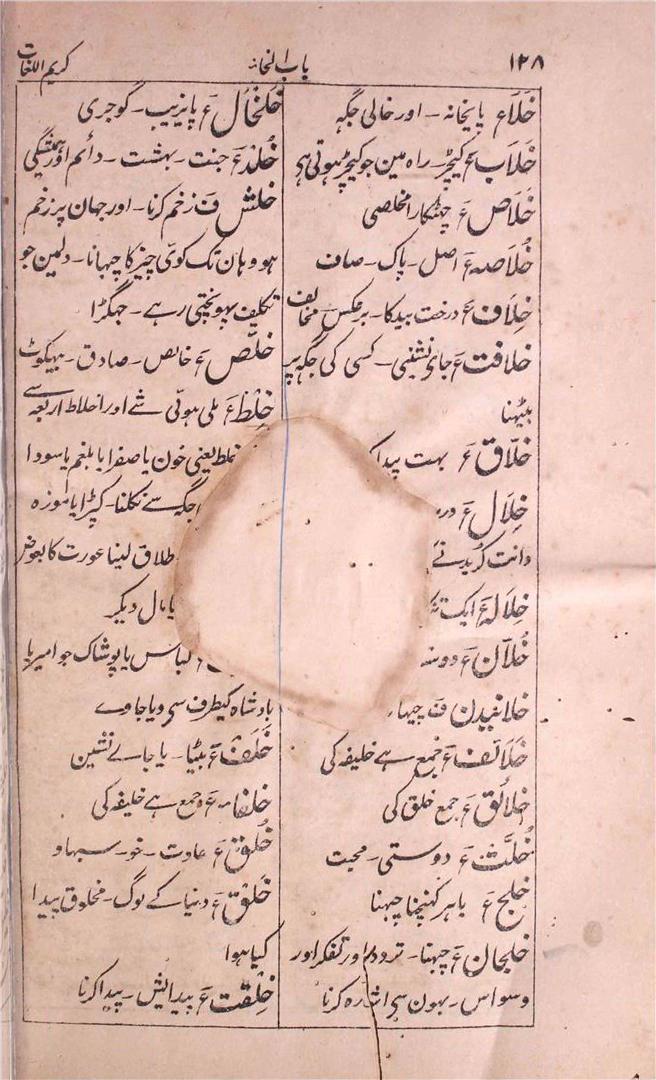 ۱۲۸
باب الخاء
کریم اللغات
خَلَاء ع پایخانہ - اور خالی جگہ
خَلَاب ع کیچڑ - راہ مین جو کیچڑ ہوتی ہی
خَلَاص ع چھٹکارا مخلصی
خُلَاصہ ع اصل - پاک - صاف
خِلَاف ع درخت بیدکا - برعکس مخالف
خلافت ع جای نشینی - کسی کی جگہ پر
بیٹھنا
خلّاق ع بہت پیدا
خِلَال ع
دانت کریدنے
خِلَالہ ع ایک
خُلَّان ع
خلانیدن ف
خَلَائف ع جمع ہے خلیفہ کی
خلائق ع جمع خلق کی
خُلّت ع دوستی - محبت
خلج ع باہر کھینچنا چبھنا
خلجان ع چبھنا - تردد اور تفکر اور
وسواس - بہون سی اشارہ کرنا
خَلخَال ع پازیب - گوجری
خُلد ع جنت - بہشت - دائم اور ہمیشگی
خلش ف زخم کرنا - اور جہان پر زخم
ہو وہان تک کوئی چیز کا چبھانا - دلمین جو
تکلیف پہونچتی رہے - جھگڑا
خلّص ع خالص - صادق - بھیکوٹ
خِلط ع ملی ہوئی شے اور اخلاط اربعہ سے
خلط یعنی خون یا صفرا یا بلغم یا سودا
جگہ سے نکلنا - کپڑا یا موزہ
طلاق لینا عورت کا بعوض
یا مال دیگر
لباس یا پوشاک جو امیر یا
بادشاہ کیطرف سی دیا جاوے
خَلَف ع بیٹا - یا جاے نشین
خلفاء ع جمع ہے خلیفہ کی
خُلق ع عادت - خو - سبھاو
خَلق ع دنیا کے لوگ - مخلوق پیدا
کیا ہوا
خِلقت ع پیدایش - پیدا کرنا